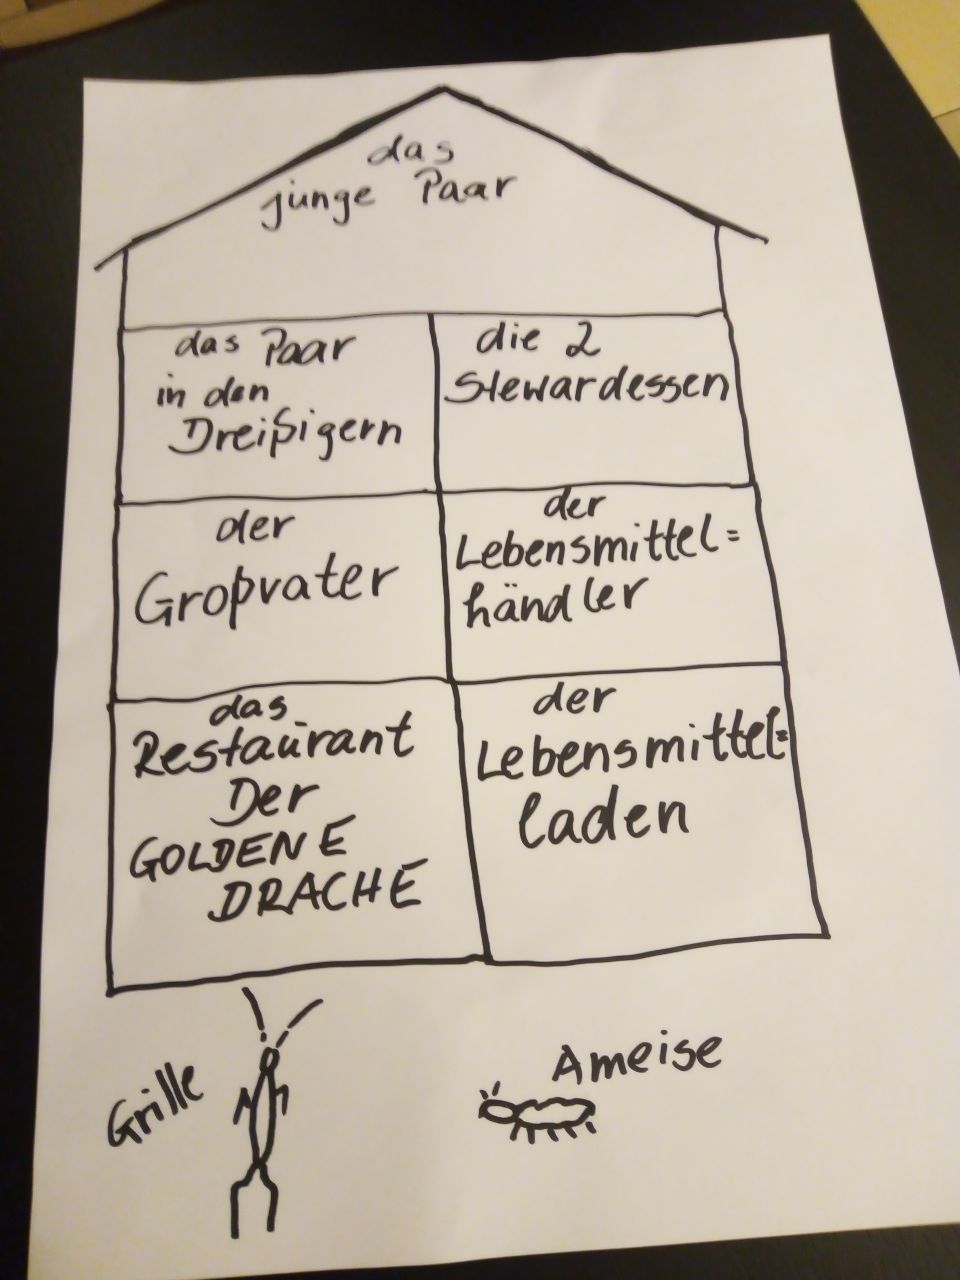 das
junge Paar
das Paar
in den
Dreißigern
die 2
Stewardessen
der
Großvater
der
Lebensmittel=
händler
das
Restaurant
Der
GOLDENE
DRACHE
der
Lebensmittel=
laden
Grille
Ameise